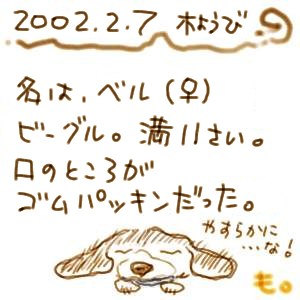 2002.2.7 木ようび
名は、ベル(♀)
ビーグル。満11さい。
口のところが
ゴムパッキンだった。
やすらかに
…な!
も。